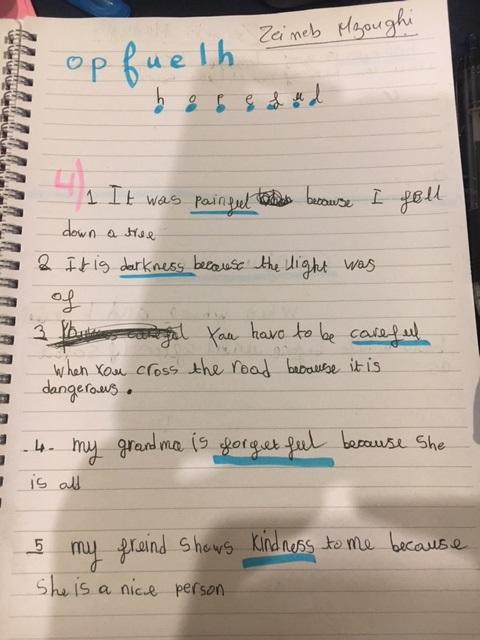 Zeineb Mzoughi
opfuelh
hopeful
4)
1 It was painful because I fell
down a tree
2 It is darkness because the light was
of
3 You have to be careful
when you cross the road because it is
dangerous.
-4- my grandma is forgetful because she
is old
5 my freind shows kindness to me because
she is a nice person